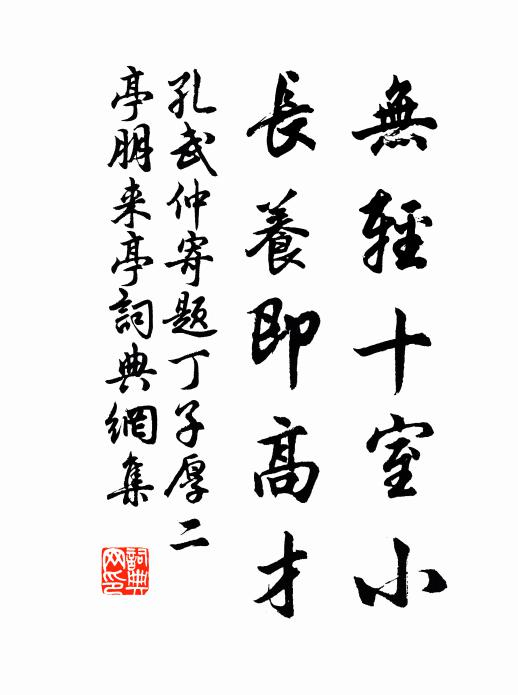 無輕十室小
長養即高才
孔武仲寄题丁子厚二
亭朋来亭詞典網集
詞典网印